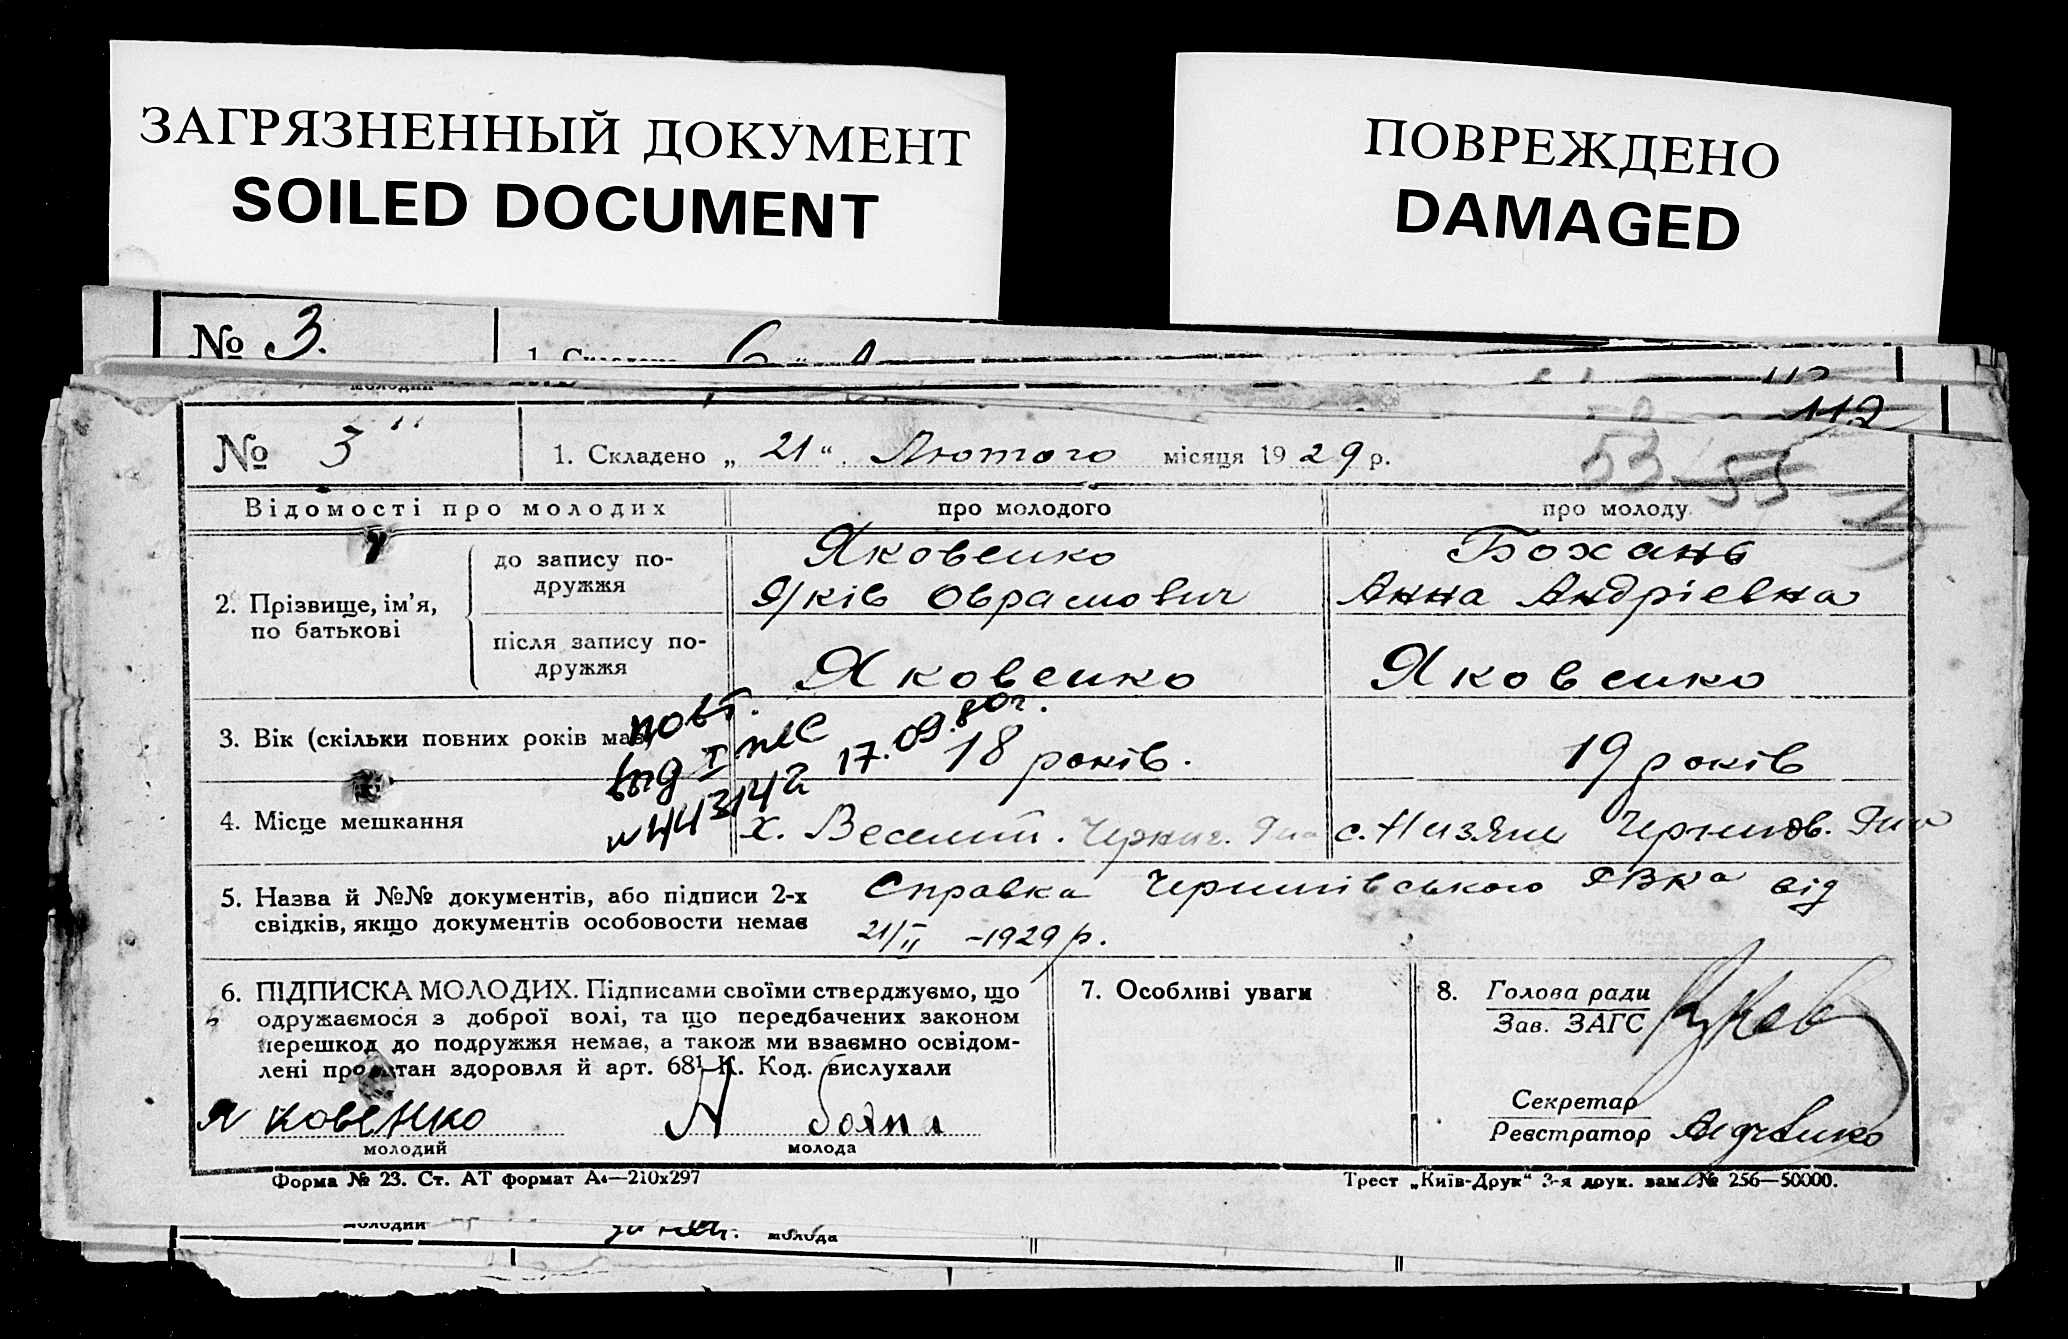 ЗАГРЯЗНЕННЫЙ ДОКУМЕНТ
SOILED DOCUMENT
ПОВРЕЖДЕНО
DAMAGED
№ 3.
молодий
112
№ 3 1. Складено „ 21 “ Лютого місяця 1929 р. 53 55
Відомості про молодих
про молодого
про молоду
2. Прізвище, ім’я, по батькові
до запису подружжя
Яковенко
Яків Оврамович
Божань
Анна Андріевна
після запису подружжя
Яковенко
Яковенко
3. Вік (скільки повних років має)
18 років.
19 років
повт.
выд I
№ 443142 17.09.80г.
4. Місце мешкання
х. Веселий.
5. Назва й №№ документів, або підписи 2-х
свідків, якщо документів особовости немає
Справка від
21/II -1929 р.
6. ПІДПИСКА МОЛОДИХ. Підписами своїми стверджуємо, що
одружаємося з доброї волі, та що передбачених законом
перешкод до подружжя немає, а також ми взаємно освідом-
лені про стан здоровля й арт. 68¹ К. Код. вислухали
Яковенко
молодий
молода
7. Особливі уваги
8. Голова ради
Зав. ЗАГС
Секретар
Реєстратор
Форма № 23. Ст. АТ формат А4—210х297
Трест „Київ-Друк“ 3-я друк. зам. № 256—50000.
молодий
молода